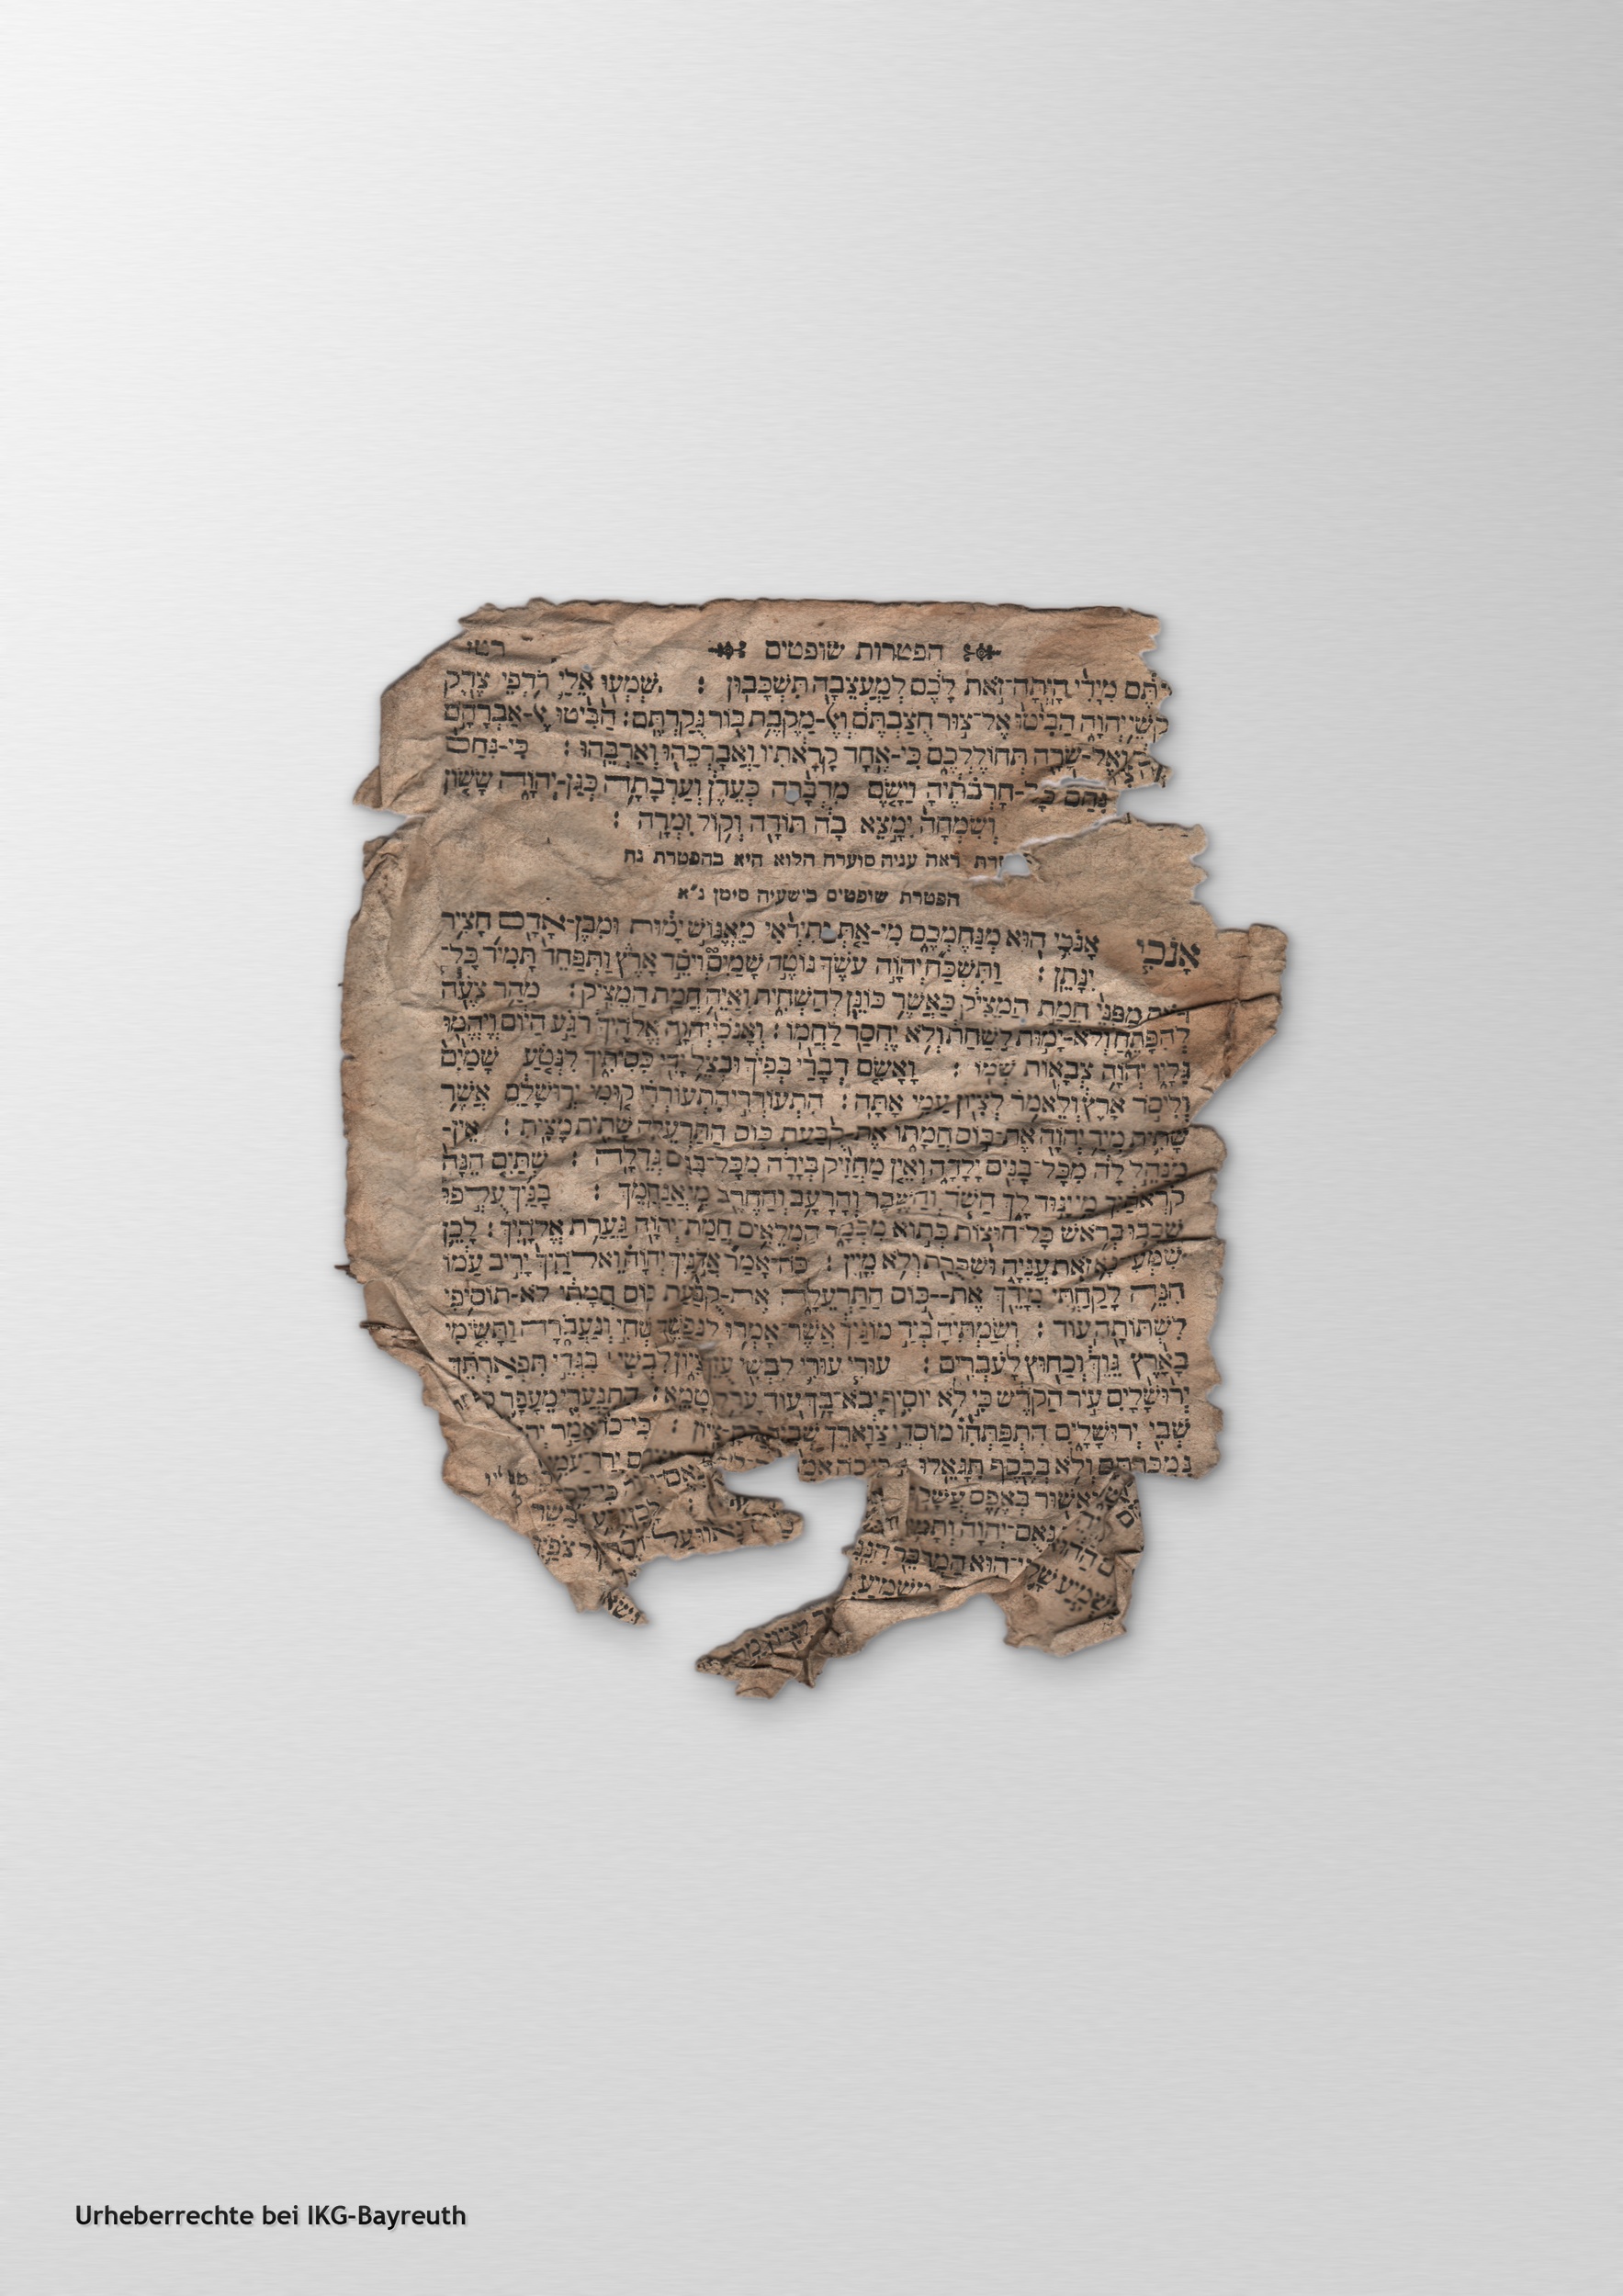 הפטרות שופטים רטו
מִיָּדִי הָיְתָה־זֹּאת לָכֶם לְמַעֲצֵבָה תִּשְׁכָּבוּן : שִׁמְעוּ אֵלַי רֹדְפֵי צֶדֶק
יְהוָה הַבִּיטוּ אֶל־צוּר חֻצַּבְתֶּם וְאֶל־מַקֶּבֶת בּוֹר נֻקַּרְתֶּם : הַבִּיטוּ אֶל־אַבְרָהָם
וְאֶל־שָׂרָה תְּחוֹלֶלְכֶם כִּי־אֶחָד קְרָאתִיו וַאֲבָרְכֵהוּ וְאַרְבֵּהוּ : כִּי־נִחַם
נִחַם כָּל־חָרְבֹתֶיהָ וַיָּשֶׂם מִדְבָּרָהּ כְּעֵדֶן וְעַרְבָתָהּ כְּגַן־יְהוָה שָׂשׂוֹן
וְשִׂמְחָה יִמָּצֵא בָהּ תּוֹדָה וְקוֹל זִמְרָה :
ראה עניה סוערה הלוא היא בהפטרת נח
הפטרת שופטים בישעיה סימן נ״א
אָנֹכִי אָנֹכִי הוּא מְנַחֶמְכֶם מִי־אַתְּ וַתִּירְאִי מֵאֱנוֹשׁ יָמוּת וּמִבֶּן־אָדָם חָצִיר
יִנָּתֵן : וַתִּשְׁכַּח יְהוָה עֹשֶׂךָ נוֹטֶה שָׁמַיִם וְיֹסֵד אָרֶץ וַתְּפַחֵד תָּמִיד כָּל־
מִפְּנֵי חֲמַת הַמֵּצִיק כַּאֲשֶׁר כּוֹנֵן לְהַשְׁחִית וְאַיֵּה חֲמַת הַמֵּצִיק : מִהַר צֹעֶה
לְהִפָּתֵחַ וְלֹא־יָמוּת לַשַּׁחַת וְלֹא יֶחְסַר לַחְמוֹ : וְאָנֹכִי יְהוָה אֱלֹהֶיךָ רֹגַע הַיָּם וַיֶּהֱמוּ
גַּלָּיו יְהוָה צְבָאוֹת שְׁמוֹ : וָאָשִׂם דְּבָרַי בְּפִיךָ וּבְצֵל יָדִי כִּסִּיתִיךָ לִנְטֹעַ שָׁמַיִם
וְלִיסֹד אָרֶץ וְלֵאמֹר לְצִיּוֹן עַמִּי אָתָּה : הִתְעוֹרְרִי הִתְעוֹרְרִי קוּמִי יְרוּשָׁלִַם אֲשֶׁר
שָׁתִית מִיַּד יְהוָה אֶת־כּוֹס חֲמָתוֹ אֶת־קֻבַּעַת כּוֹס הַתַּרְעֵלָה שָׁתִית מָצִית : אֵין־
מְנַהֵל לָהּ מִכָּל־בָּנִים יָלָדָה וְאֵין מַחֲזִיק בְּיָדָהּ מִכָּל־בָּנִים גִּדֵּלָה : שְׁתַּיִם הֵנָּה
קֹרְאֹתַיִךְ מִי יָנוּד לָךְ הַשֹּׁד וְהַשֶּׁבֶר וְהָרָעָב וְהַחֶרֶב מִי אֲנַחֲמֵךְ : בָּנַיִךְ עֻלְּפוּ
שָׁכְבוּ בְּרֹאשׁ כָּל־חוּצוֹת כְּתוֹא מִכְמָר הַמְלֵאִים חֲמַת־יְהוָה גַּעֲרַת אֱלֹהָיִךְ : לָכֵן
שִׁמְעִי נָא זֹאת עֲנִיָּה וּשְׁכֻרַת וְלֹא מִיָּיִן : כֹּה־אָמַר אֲדֹנַיִךְ יְהוָה וֵאלֹהַיִךְ יָרִיב עַמּוֹ
הִנֵּה לָקַחְתִּי מִיָּדֵךְ אֶת־כּוֹס הַתַּרְעֵלָה אֶת־קֻבַּעַת כּוֹס חֲמָתִי לֹא־תוֹסִיפִי
לִשְׁתּוֹתָהּ עוֹד : וְשַׂמְתִּיהָ בְּיַד מוֹגַיִךְ אֲשֶׁר־אָמְרוּ לְנַפְשֵׁךְ שְׁחִי וְנַעֲבֹרָה וַתָּשִׂימִי
כָאָרֶץ גֵּוֵךְ וְכַחוּץ לַעֹבְרִים : עוּרִי עוּרִי לִבְשִׁי עֻזֵּךְ צִיּוֹן לִבְשִׁי בִּגְדֵי תִפְאַרְתֵּךְ
יְרוּשָׁלִַים עִיר הַקֹּדֶשׁ כִּי לֹא יוֹסִיף יָבֹא־בָךְ עוֹד עָרֵל וְטָמֵא : הִתְנַעֲרִי מֵעָפָר
שְּׁבִי יְרוּשָׁלִָים הִתְפַּתְּחוּ מוֹסְרֵי צַוָּארֵךְ שְׁבִיָּה בַּת־צִיּוֹן : כִּי־כֹה אָמַר
נִמְכַּרְתֶּם וְלֹא בְכֶסֶף תִּגָּאֵלוּ : כִּי כֹה אָמַר
וְאַשּׁוּר בְּאֶפֶס עֲשָׁקוֹ
נְאֻם־יְהוָה לָכֵן יֵדַע
הַהוּא כִּי־הוּא הַמְדַבֵּר הִנֵּנִי
מַשְׁמִיעַ
לְצִיּוֹן

Urheberrechte bei IKG-Bayreuth